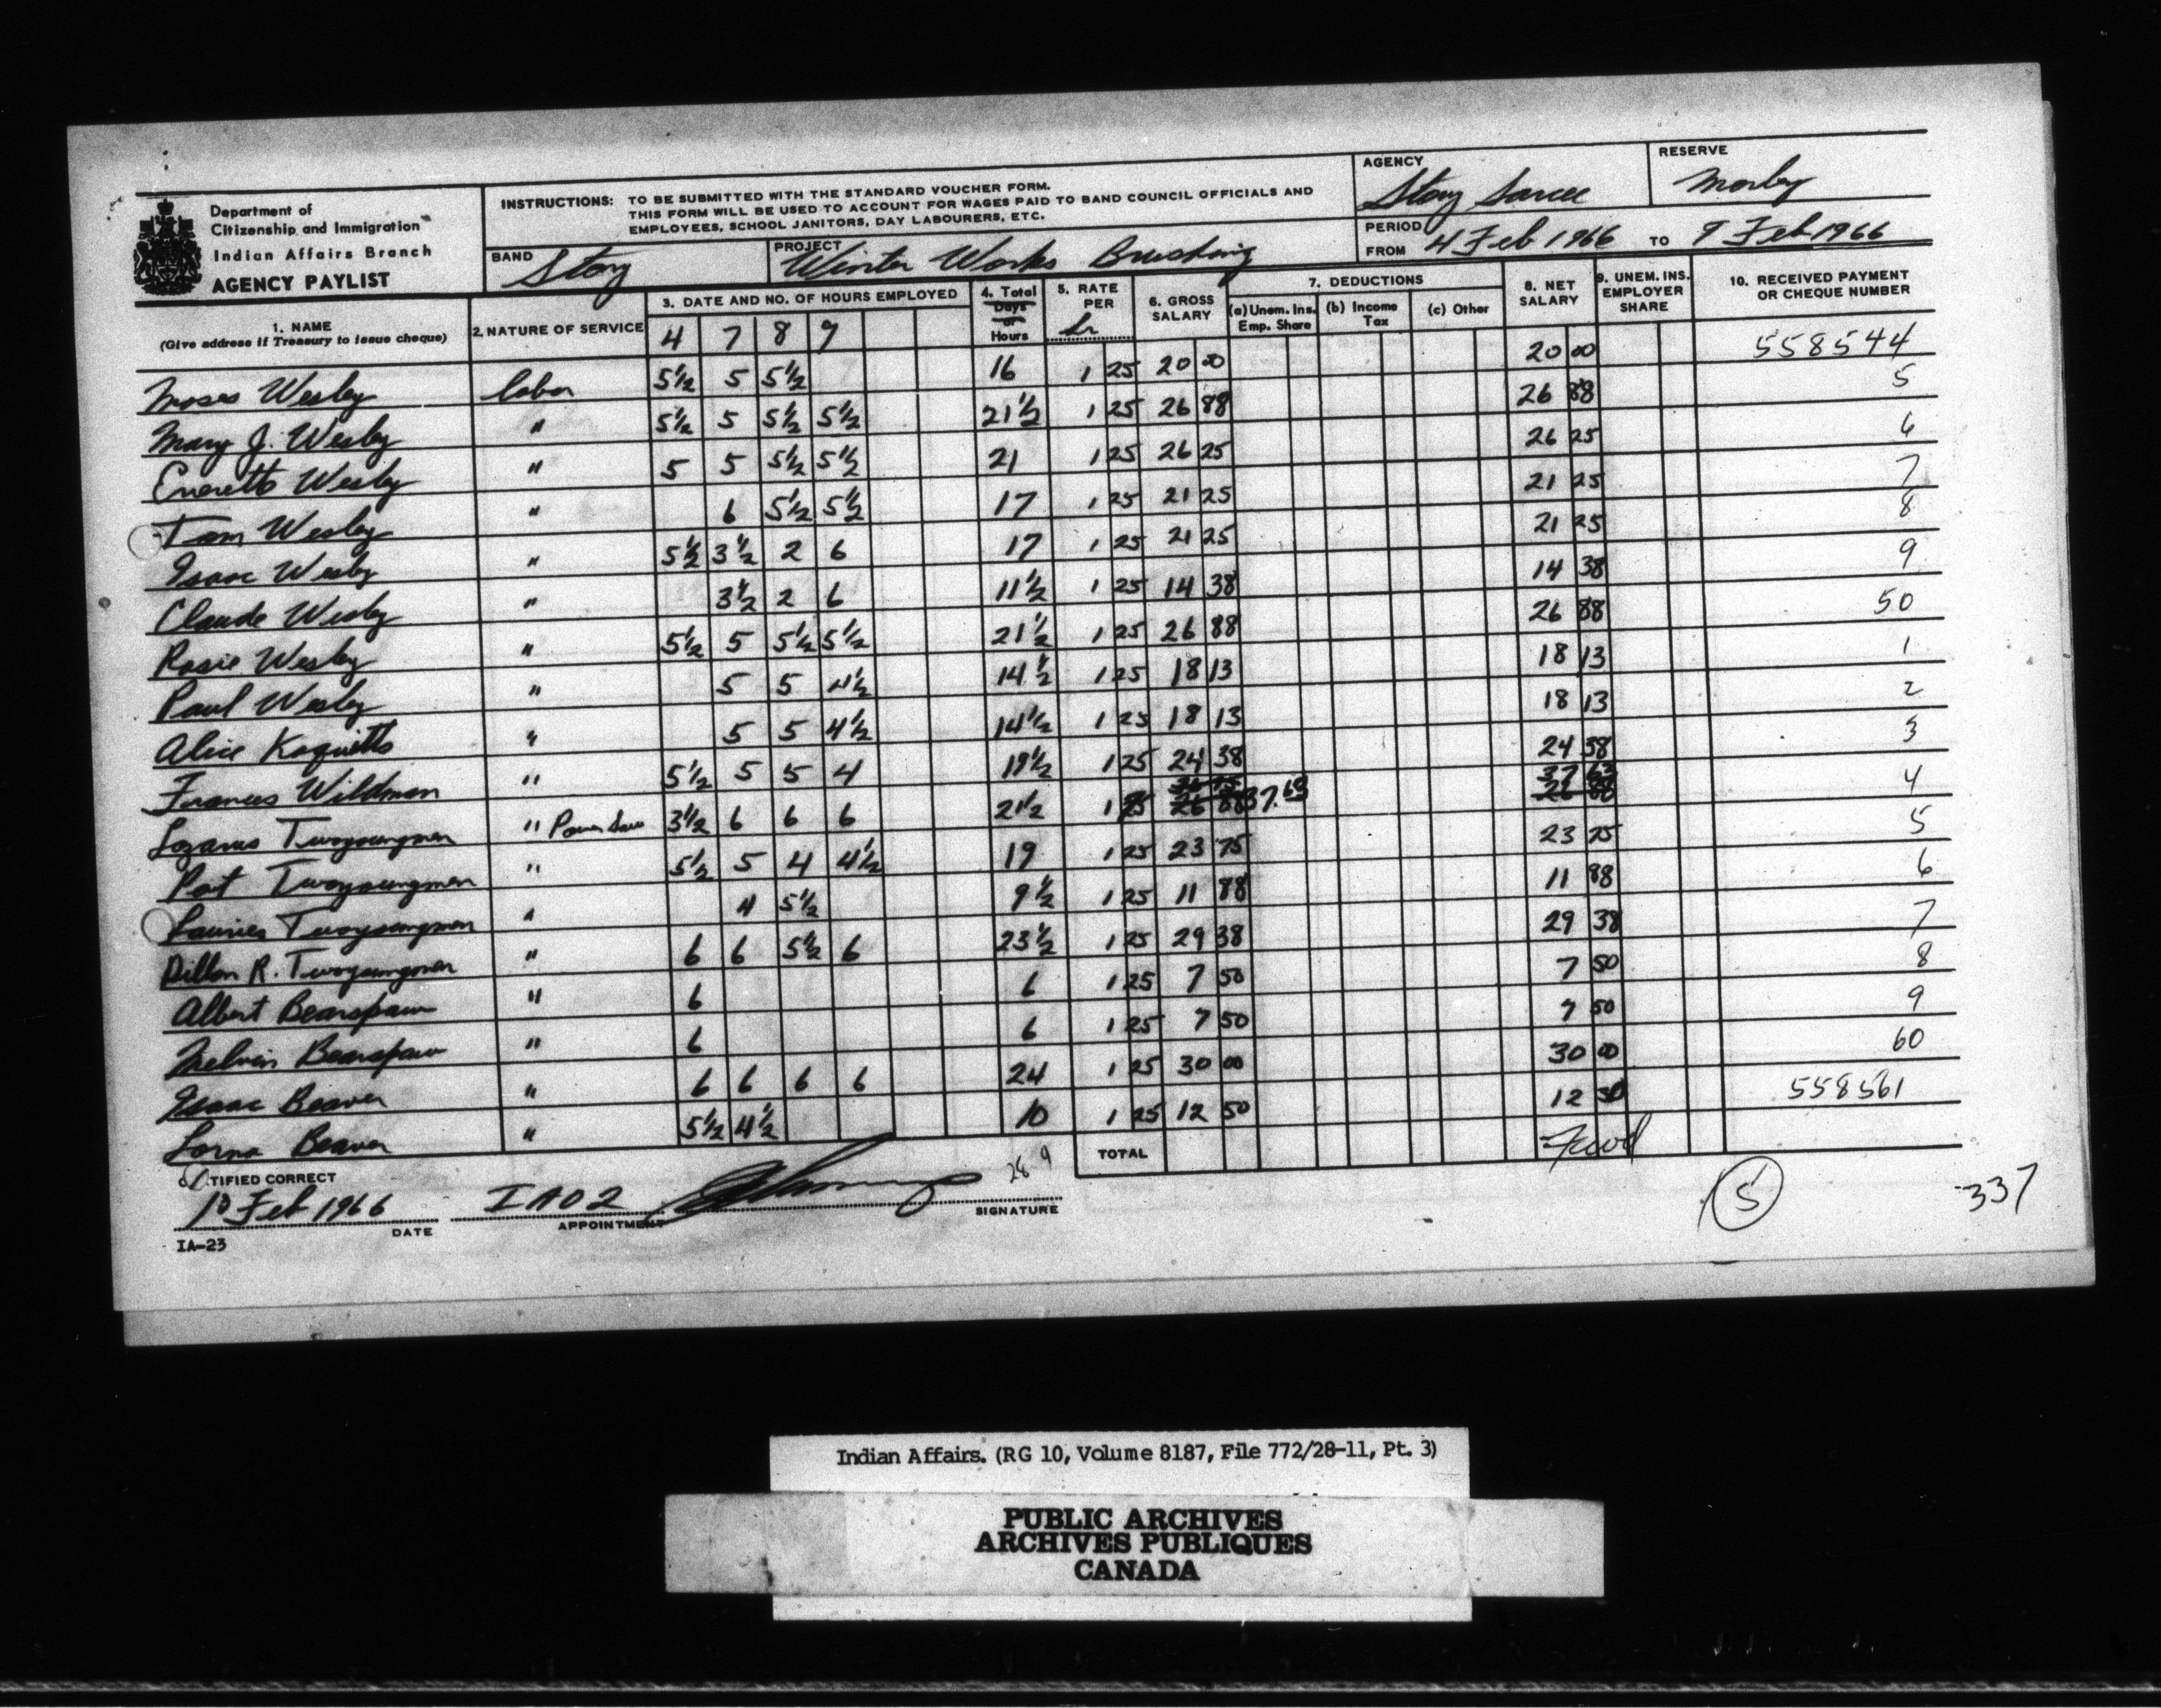 Department of
Citizenship and Immigration
Indian Affairs Branch
AGENCY PAYLIST
INSTRUCTIONS: TO BE SUBMITTED WITH THE STANDARD VOUCHER FORM.
THIS FORM WILL BE USED TO ACCOUNT FOR WAGES PAID TO BAND COUNCIL OFFICIALS AND
EMPLOYEES, SCHOOL JANITORS, DAY LABOURERS, ETC.
AGENCY Stony Sarcee
RESERVE Morley
BAND Stony
PROJECT Winter Works Brushing
PERIOD FROM 4 Feb 1966 TO 9 Feb 1966
1. NAME (Give address if Treasury to issue cheque) 2. NATURE OF SERVICE 3. DATE AND NO. OF HOURS EMPLOYED 4. Total Days or Hours 5. RATE PER hr 6. GROSS SALARY 7. DEDUCTIONS (a) Unem. Ins. Emp. Share (b) Income Tax (c) Other 8. NET SALARY 9. UNEM. INS. EMPLOYER SHARE 10. RECEIVED PAYMENT OR CHEQUE NUMBER
4 7 8 9
Moses Wesley labor 5½ 5 5½ 16 1 25 20 00 20 00 558544
Mary J. Wesley " 5½ 5 5½ 5½ 21½ 1 25 26 88 26 88 5
Everett Wesley " 5 5 5½ 5½ 21 1 25 26 25 26 25 6
Tom Wesley " 6 5½ 5½ 17 1 25 21 25 21 25 7
Isaac Wesley " 5½ 3½ 2 6 17 1 25 21 25 21 25 8
Claude Wesley " 3½ 2 6 11½ 1 25 14 38 14 38 9
Rosie Wesley " 5½ 5 5½ 5½ 21½ 1 25 26 88 26 88 50
Paul Wesley " 5 5 4½ 14½ 1 25 18 13 18 13 1
Alice Kaquitts " 5 5 4½ 14½ 1 25 18 13 18 13 2
Frances Wildman " 5½ 5 5 4 19½ 1 25 24 38 24 38 3
Lazarus Twoyoungmen " Power Saw 3½ 6 6 6 21½ 1 26 88 37.63 37 63 26 88 4
Pat Twoyoungmen " 5½ 5 4 4½ 19 1 25 23 75 23 75 5
Twoyoungmen " 4 5½ 9½ 1 25 11 88 11 88 6
Dillon R. Twoyoungmen " 6 6 5½ 6 23½ 1 25 29 38 29 38 7
Albert Bearspaw " 6 6 1 25 7 50 7 50 8
Melvin Bearspaw " 6 6 1 25 7 50 7 50 9
Isaac Beaver " 6 6 6 6 24 1 25 30 00 30 00 60
Lorna Beaver " 5½ 4½ 10 1 25 12 50 12 50 558561
TOTAL Fwd
TIFIED CORRECT
10 Feb 1966 IAO2
DATE APPOINTMENT SIGNATURE
IA-23
5
337
Indian Affairs. (RG 10, Volume 8187, File 772/28-11, Pt. 3)
PUBLIC ARCHIVES
ARCHIVES PUBLIQUES
CANADA